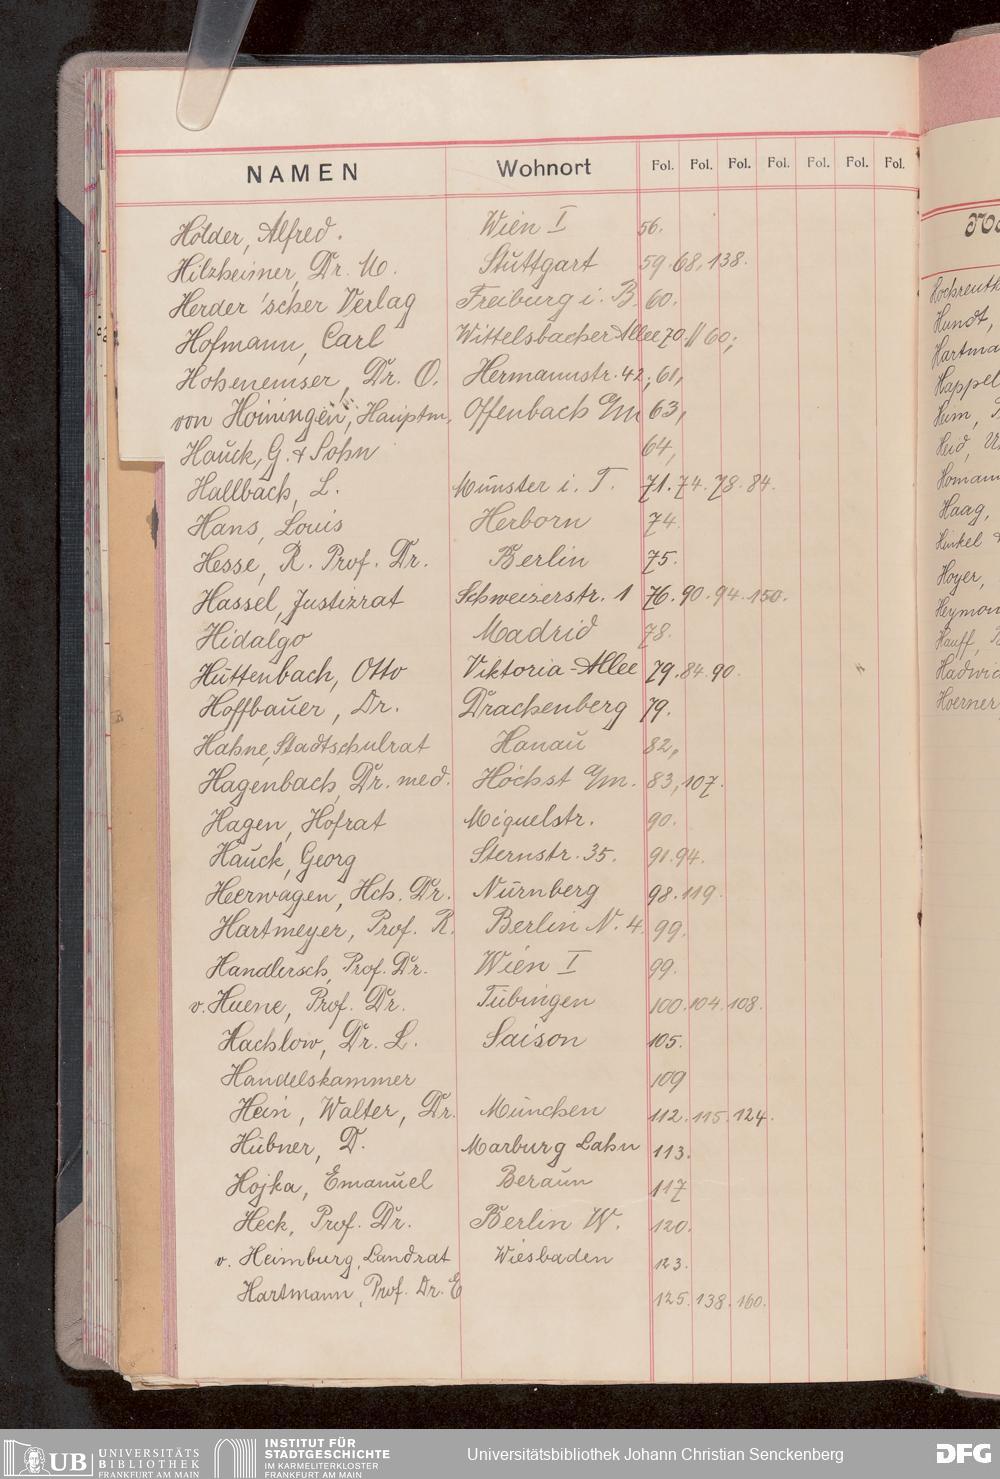 NAMEN Wohnort Fol. Fol. Fol. Fol. Fol. Fol. Fol.
Hölder, Alfred. Wien I 56.
Hilzheimer, Dr. M. Stuttgart 59. 68. 138.
Herder'scher Verlag Freiburg i. B. 60.
Hofmann, Carl Wittelsbacher Allee 70 // 60;
Hohenemser, Dr. O. Hermannstr. 42, 61,
von Hoiningen, Hauptm. Offenbach a/m 63,
Hauck, G. & Sohn 64,
Hallbach, L. Münster i. T. 71. 74. 78. 84.
Hans, Louis Herborn 74.
Hesse, R. Prof. Dr. Berlin 75.
Hassel, Justizrat Schweizerstr. 1 76. 90. 94. 150.
Hidalgo Madrid 78.
Hüttenbach, Otto Viktoria-Allee 79. 84. 90.
Hoffbauer, Dr. Drachenberg 79.
Hahne, Stadtschulrat Hanau 82,
Hagenbach, Dr. med. Höchst a/m. 83, 107.
Hagen, Hofrat Miquelstr. 90.
Hauck, Georg Sternstr. 35. 91. 94.
Heerwagen, Hch. Dr. Nürnberg 98. 119.
Hartmeyer, Prof. R. Berlin N. 4. 99.
Handlirsch, Prof. Dr. Wien I 99.
v. Huene, Prof. Dr. Tübingen 100. 104. 108.
Hachlow, Dr. L. Saison 105.
Handelskammer 109
Hein, Walter, Dr. München 112. 115. 124.
Hübner, D. Marburg Lahn 113.
Hojka, Emanuel Beraun 117
Heck, Prof. Dr. Berlin W. 120.
v. Heimburg, Landrat Wiesbaden 123.
Hartmann, Prof. Dr. E 125. 138. 160.
Hundt,
Haag,
Hinkel
Hoyer,
Hauff,
Hoerner
UB UNIVERSITÄTS BIBLIOTHEK FRANKFURT AM MAIN
INSTITUT FÜR STADTGESCHICHTE IM KARMELITERKLOSTER FRANKFURT AM MAIN
Universitätsbibliothek Johann Christian Senckenberg
DFG